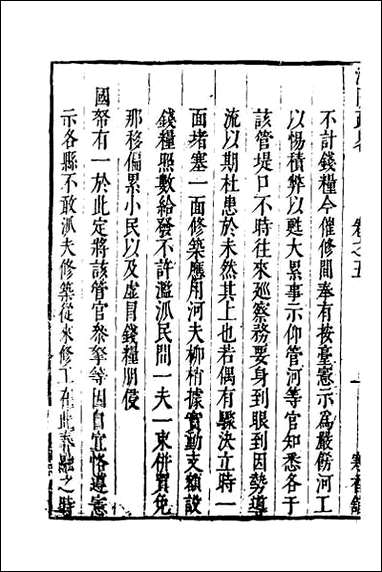 卷之五
不計錢糧今催修間奉有按臺憲示為嚴傍河工
以惕積弊以甦大累事示仰管河等官知悉各于
該管堤口不時往來廵察務要身到眼到因勢導
流以期杜患於未然其上也若偶有驟決立時一
面堵塞一面修築應用河夫柳梢據實動支額設
錢糧照數給發不許濫派民間一夫一束併買免
那移偏累小民以及虛冒錢糧朋侵
國帑有一於此定將該管官叅拏等因自宜恪遵憲
示各縣不敢派夫修築從來修工在此春融之時